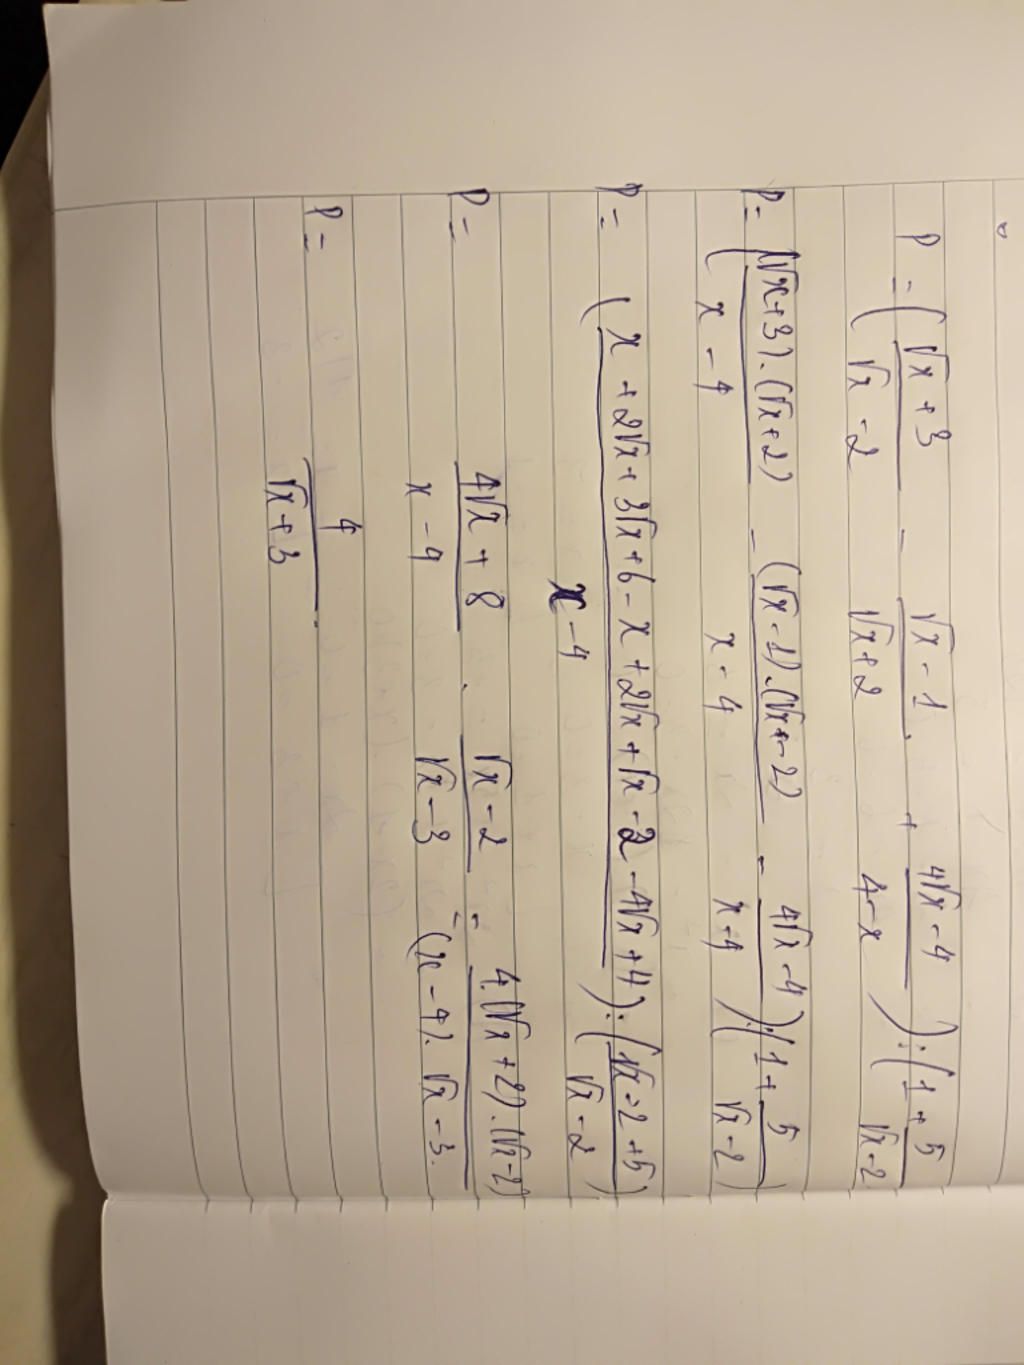 P = ( (√x + 3)/(√x - 2) - (√x - 1)/(√x + 2) + (4√x - 4)/(4 - x) ) : ( 1 + 5/(√x - 2)
P = ( (√x + 3).(√x + 2)/(x - 4) - (√x - 1).(√x - 2)/(x - 4) - (4√x - 4)/(x - 4) ) : ( 1 + 5/(√x - 2) )
P = ( (x + 2√x + 3√x + 6 - x + 2√x + √x - 2 - 4√x + 4)/(x - 4) ) : ( (√x - 2 + 5)/(√x - 2) )
P = (4√x + 8)/(x - 4) . (√x - 2)/(√x - 3) = 4.(√x + 2).(√x - 2)/((x - 4).√x - 3.)
P = 4/(√x + 3) .